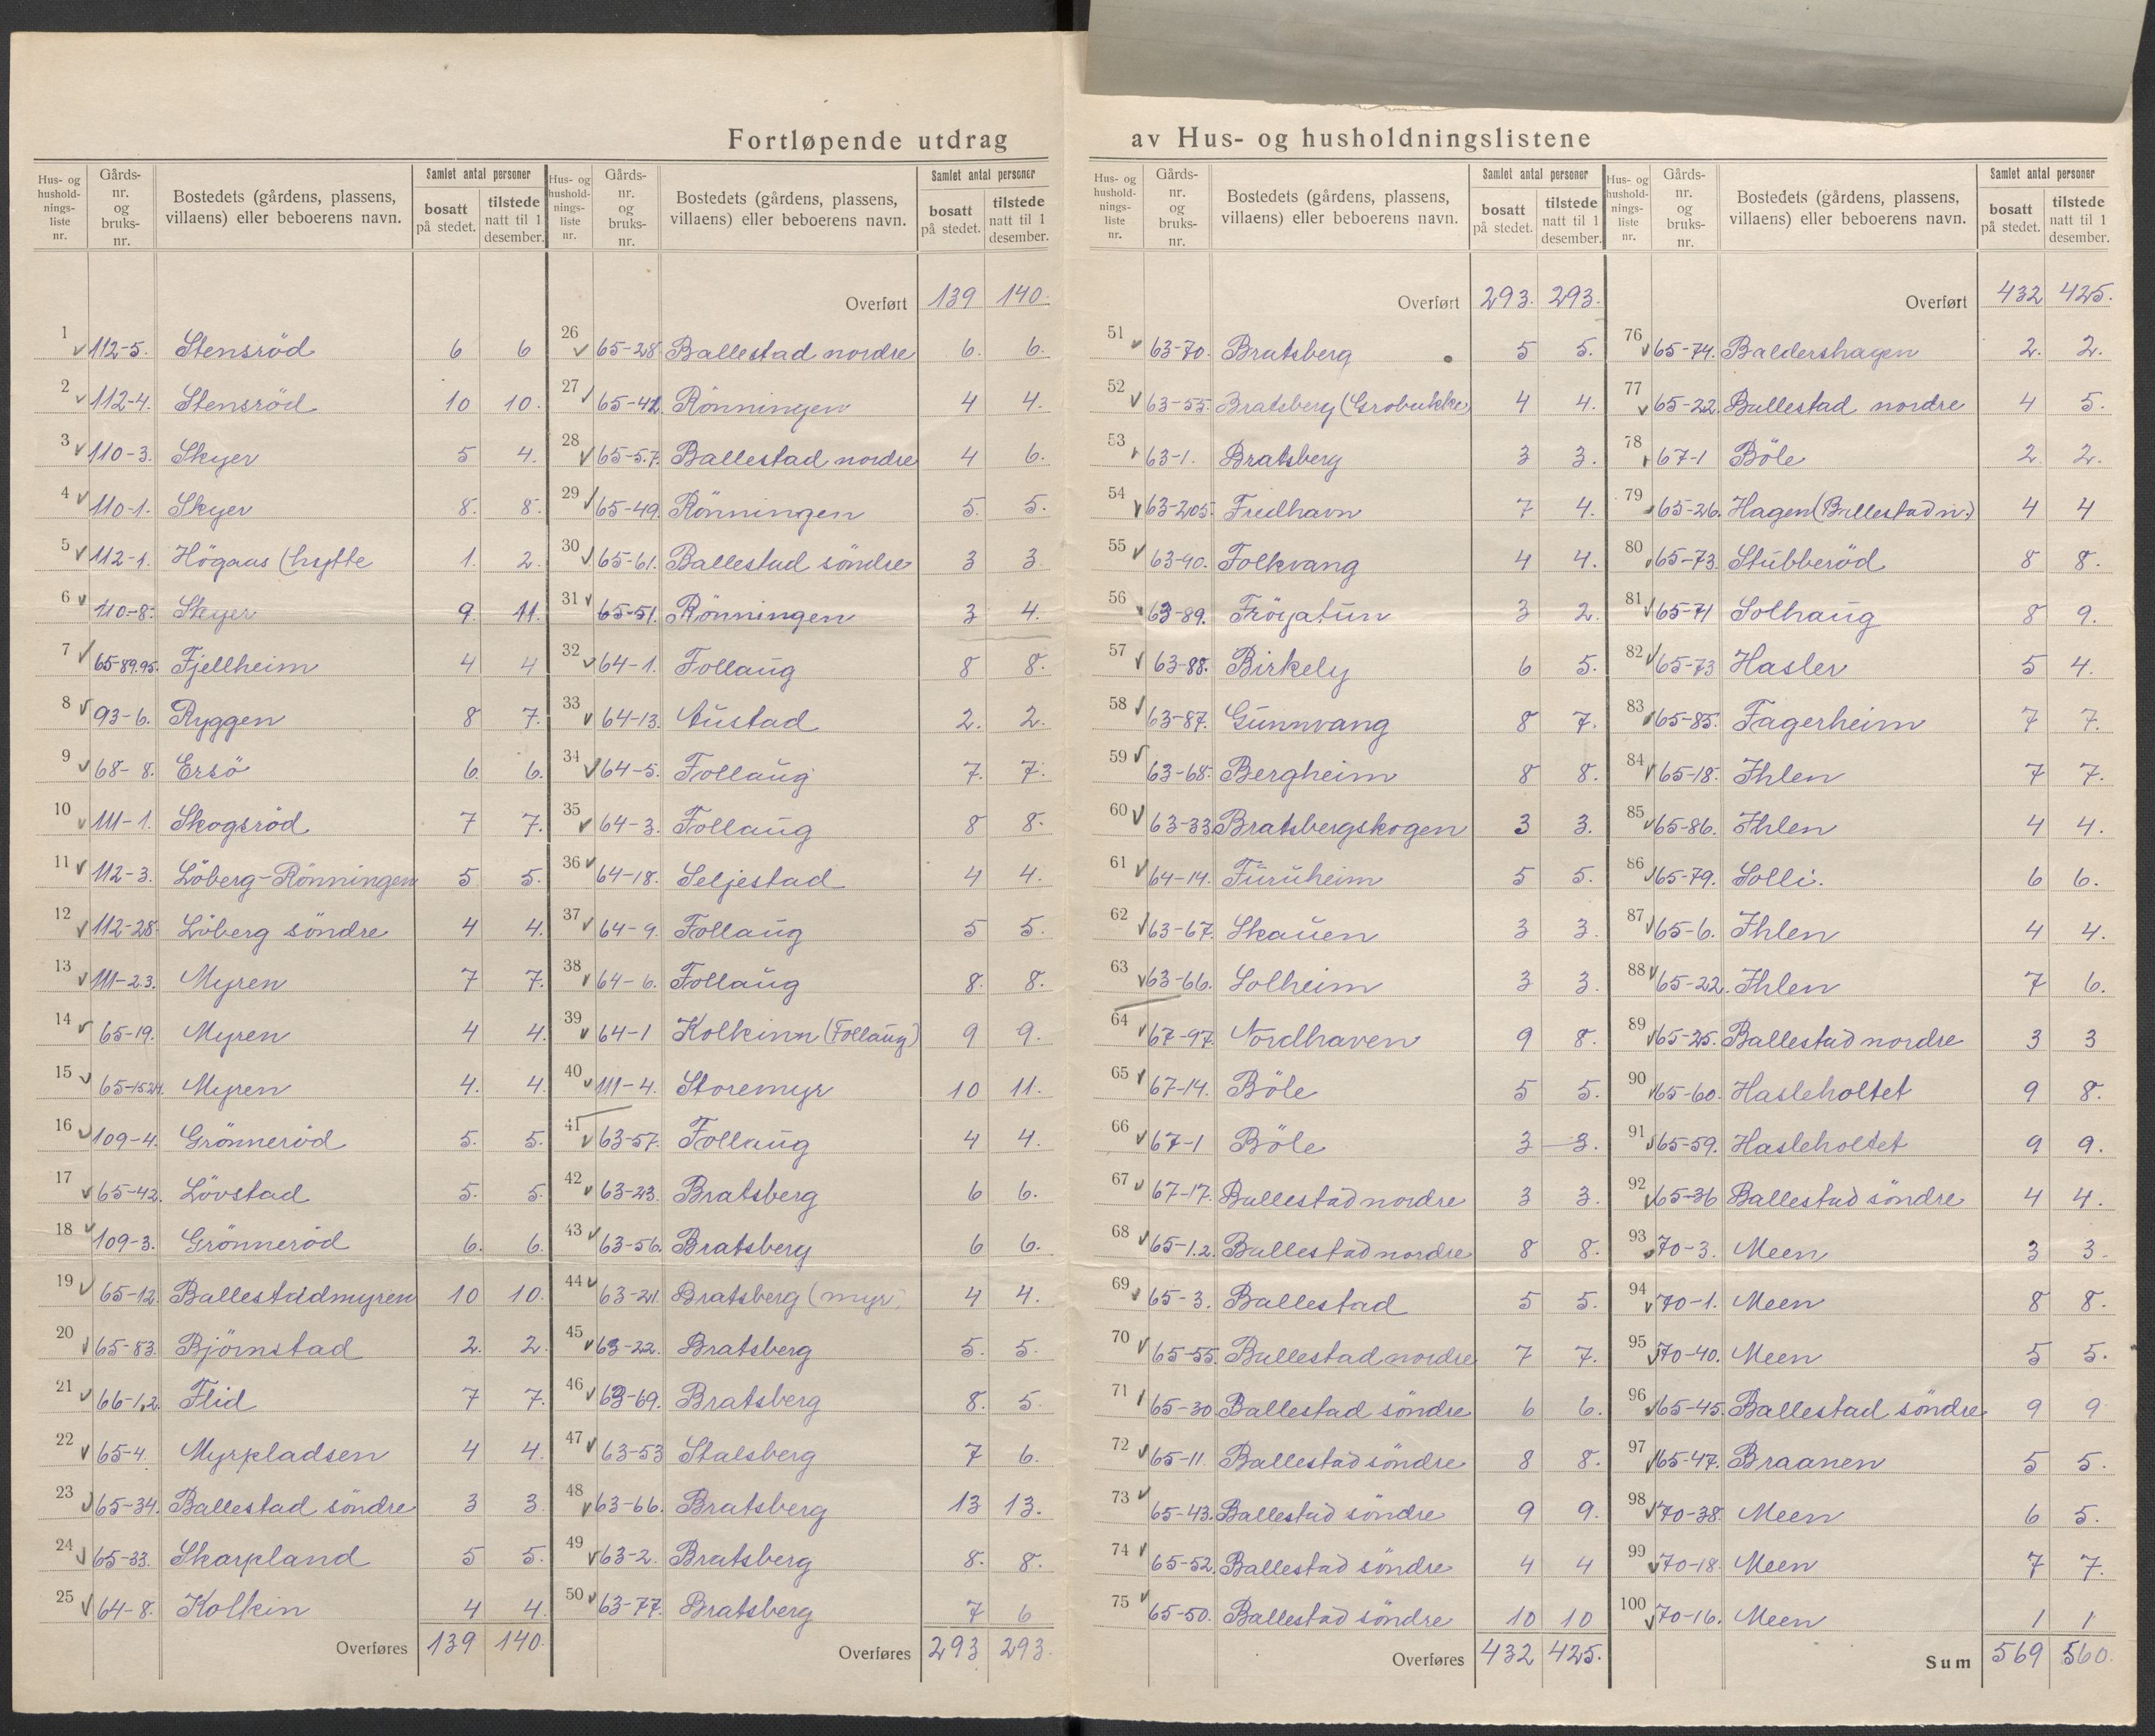 Fortløpende utdrag av Hus- og husholdningslistene
Hus- og husholdningsliste nr. | Gårds-nr. og bruks-nr. | Bostedets (gårdens, plassens, villaens) eller beboerens navn. | Samlet antal personer | bosatt på stedet. | tilstede natt til 1 desember.
1 112-5. Stensröd 6 6
2 112-4. Stensröd 10 10.
3 110-3. Skyer 5 4.
4 110-1. Skyer 8. 8.
5 112-1. Högaas (hytte 1. 2.
6 110-8. Skyer 9. 11.
7 65-89.95. Fjellheim 4 4
8 93-6. Ryggen 8 7.
9 68-8. Ersö 6. 6.
10 111-1. Skogsröd 7 7.
11 112-3. Löberg-Rönningen 5 5.
12 112-28. Löberg söndre 4 4.
13 111-23. Myren 7 7.
14 65-19. Myren 4 4.
15 65-15.24. Myren 4. 4.
16 109-4. Grönneröd 5. 5.
17 65-42. Lövstad 5. 5.
18 109-3. Grönneröd 6. 6.
19 65-12. Ballestadmyren 10 10.
20 65-83. Björnstad 2. 2.
21 66-1,2. Flid 7 7.
22 65-4. Myrpladsen 4 4.
23 65-34. Ballestad söndre 3 3.
24 65-33. Skarpland 5 5.
25 64-8. Kolkin 4 4.
Overføres 139 140.
Hus- og husholdningsliste nr. | Gårds-nr. og bruks-nr. | Bostedets (gårdens, plassens, villaens) eller beboerens navn. | Samlet antal personer | bosatt på stedet. | tilstede natt til 1 desember.
Overført 139 140.
26 65-28. Ballestad nordre 6. 6.
27 65-42. Rönningen 4 4.
28 65-57. Ballestad nordre 4 6.
29 65-49. Rönningen 5. 5.
30 65-61. Ballestad söndre 3 3
31 65-51. Rönningen 3 4.
32 64-1. Follaug 8 8.
33 64-13. Austad 2. 2.
34 64-5. Follaug 7. 7.
35 64-3. Follaug 8 8.
36 64-18. Seljestad 4 4.
37 64-9. Follaug 5 5.
38 64-6. Follaug 8. 8.
39 64-1 Kolkinn (Follaug) 9 9.
40 111-4. Storemyr 10 11.
41 63-57. Follaug 4 4.
42 63-23. Bratsberg 6 6.
43 63-56. Bratsberg 6 6.
44 63-21. Bratsberg (myr. 4 4.
45 63-22. Bratsberg 5. 5.
46 63-69. Bratsberg 8. 5.
47 63-53 Stalsberg 7 6.
48 63-66. Bratsberg 13 13.
49 63-2. Bratsberg 8. 8.
50 63-77. Bratsberg 7 6
Overføres 293 293.
Hus- og husholdningsliste nr. | Gårds-nr. og bruks-nr. | Bostedets (gårdens, plassens, villaens) eller beboerens navn. | Samlet antal personer | bosatt på stedet. | tilstede natt til 1 desember.
Overført 293. 293.
51 63-70. Bratsberg 5 5.
52 63-55. Bratsberg (Grobukke) 4 4.
53 63-1. Bratsberg 3 3.
54 63-205. Fredhavn 7 4.
55 63-90. Folkvang 4 4.
56 63-89. Fröyatun 3 2.
57 63-88. Birkely 6 5.
58 63-87. Gunnvang 8 7.
59 63-68. Bergheim 8 8.
60 63-33 Bratsbergskogen 3 3.
61 64-14. Furuheim 5 5.
62 63-67. Skauen 3 3.
63 63-66. Solheim 3 3.
64 67-97. Nordhaven 9 8.
65 67-14. Böle 5 5.
66 67-1 Böle 3 3.
67 67-17. Ballestad nordre 3 3.
68 65-1.2. Ballestad nordre 8 8.
69 65-3. Ballestad 5 5.
70 65-55. Ballestad nordre 7 7.
71 65-30 Ballestad söndre 6 6.
72 65-11. Ballestad söndre 8 8.
73 65-43. Ballestad söndre 9 9.
74 65-52. Ballestad söndre 4 4
75 65-50. Ballestad söndre 10 10
Overføres 432 425.
Hus- og husholdningsliste nr. | Gårds-nr. og bruks-nr. | Bostedets (gårdens, plassens, villaens) eller beboerens navn. | Samlet antal personer | bosatt på stedet. | tilstede natt til 1 desember.
Overført 432 425.
76 65-74. Baldershagen 2. 2.
77 65-22. Ballestad nordre 4 5.
78 67-1 Böle 2 2.
79 65-26. Hagen (Ballestad n.) 4 4
80 65-73. Stubberöd 8 8.
81 65-71 Solhaug 8 9.
82 65-73 Hasler 5 4.
83 65-85. Fagerheim 7 7.
84 65-18. Ihlen 7 7.
85 65-86. Ihlen 4 4.
86 65-79. Solli. 6 6.
87 65-6. Ihlen 4 4.
88 65-22. Ihlen 7 6.
89 65-25. Ballestad nordre 3 3
90 65-60. Hasleholtet 9 8.
91 65-59. Hasleholtet 9 9.
92 65-36 Ballestad söndre 4 4.
93 70-3. Meen 3 3.
94 70-1. Meen 8 8.
95 70-40. Meen 5 5.
96 65-45. Ballestad söndre 9 9
97 65-47. Braanen 5 5.
98 70-38. Meen 6 5.
99 70-18. Meen 7 7.
100 70-16. Meen 1 1
Sum 569 560.